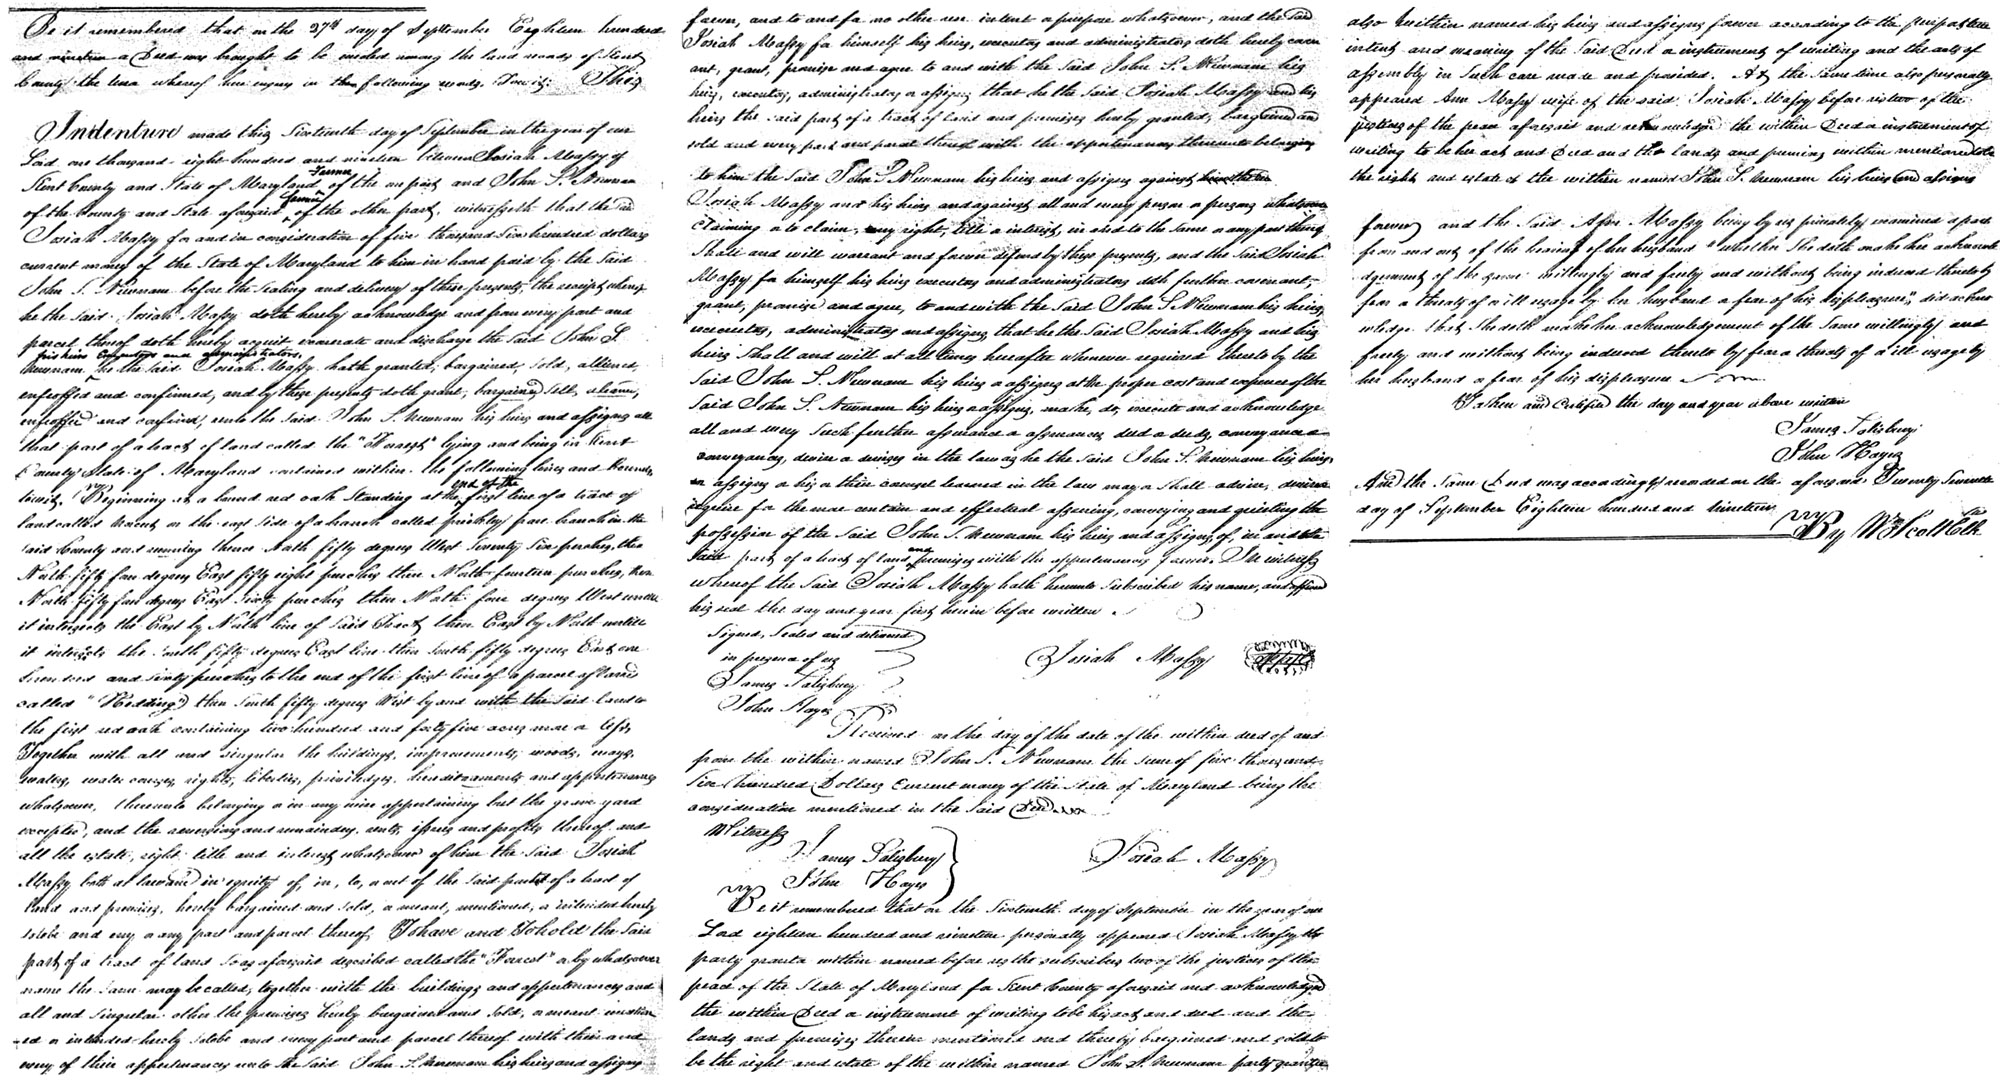 Be it remembered that on the 27th day of September Eighteen hundred
and nineteen a Deed was brought to be enroled among the land records of Kent
County the tenor whereof here ensues in the following words. Towit: This
Indenture made this Sixteenth day of September in the year of our
Lord one thousand eight hundred and nineteen between Josiah Massy of
Kent County and State of Maryland Farmer of the one part and John S. Newnam
of the County and State aforesaid Farmer of the other part, witnesseth that the said
Josiah Massy for and in consideration of five thousand Six hundred dollars
current money of the State of Maryland to him in hand paid by the Said
John S. Newnam before the Sealing and delivery of these presents, the receipt whereof
he the Said Josiah Massy doth hereby acknowledge and from every part and
parcel thereof doth hereby acquit exonerate and discharge the Said John S.
Newnam his heirs Executors and administrators, he the Said Josiah Massy hath granted, bargained, Sold, aliened,
enfeoffed and confirmed, and by these presents doth grant, bargained, Sell, aliene,
enfeoffed and confirmed, unto the Said John S. Newnam his heirs and assigns all
that part of a tract of land called the "Forrest" lying and being in Kent
County State of Maryland contained within the following lines and bounds,
towit, Beginning at a bound red oak Standing at the end of the first line of a tract of
land called on the east Side of a branch called prickly pear branch in the
said County and running thence North fifty degrees West Seventy Six perches, then
North fifty four degrees East fifty eight perches then North fourteen perches, then
North fifty four degrees East Sixty perches then North four degrees West untill
it intersects the East by North line of Said Tract, then East by North untill
it intersects the South fifty degrees East line then South fifty degrees East one
hundred and Sixty perches to the end of the first line of a parcel of land
called "Hedding" then South fifty degrees West by and with the Said land to
the first red oak containing two hundred and forty five acres more or less,
Together with all and singular the buildings, improvements, woods, ways,
waters, water courses, rights, liberties, priviledges, hereditaments and appertenances
whatsoever, thereunto belonging or in any wise appertaining but the grave yard
excepted, and the reversions and remainders, rents, issues and profits thereof and
all the estate, right title and interest whatsoever of him the Said Josiah
Massy both at law and in equity of, in, to, or out of the Said part of a tract of
land and premises, hereby bargained and Sold, or meant, mentioned, or intended hereby
to be and every or any part and parcel thereof, To have and To hold the Said
part of a tract of land So as aforesaid described called the "Forrest" or by whatsoever
name the Same may be called, together with the buildings and appertenances and
all and Singular other the premises hereby bargained and Sold, or meant mention
-ed or intended hereby to be and every part and parcel thereof with their and
every of their appertenances unto the Said John S. Newnam his heirs and assigns
forever, and to and for no other use intent or purpose whatsoever, and the said
Josiah Massy for himself his heirs, executors and administrators doth hereby coven
ant, grant, promise and agree to and with the Said John S. Newnam his
heirs, executors, administrators or assigns that he the Said Josiah Massy and his
heirs the said part of a tract of land and premises hereby granted, bargained and
sold and every part and parcel thereof with the appertenances thereunto belonging
to him the Said John S Newnam his heirs and assigns against him the
Josiah Massy and his heirs and against all and every person or persons whatsoever
claiming or to claim, any right, title or interest, in and to the Same or any part thereof
Shall and will warrant and forever defend by these presents, and the Said Josiah
Massy for himself his heirs executors and administrators doth further covenant,
grant, promise and agree, to and with the Said John S Newnam his heirs,
executors, administrators and assigns, that he the Said Josiah Massy and his
heirs Shall and will at all times hereafter whenever required thereto by the
Said John S. Newnam his heirs or assigns at the proper cost and expence of the
Said John S. Newnam his heirs or assigns, make, do, execute and acknowledge
all and every Such further assurance or assurances deed or deeds, conveyance or
conveyances, devise or devises in the law as he the Said John S. Newnam his heirs
or assigns or his or their counsel learned in the law may or Shall advise, devise
require for the more certain and effectual assuring, conveying and quieting the
possession of the Said John S. Newnam his heirs and assigns, of, in and to the
said part of a tract of land and premises with the appertenances forever. In witness
whereof the Said Josiah Massy hath hereunto Subscribed his name, and affixed
his seal the day and year first herein before written
Signed, Sealed and delivered
in presence of us
Josiah Massy Seal
James Salisbury
John Hayes
Received on the day of the date of the within deed of and
from the within named John S. Newnam the sum of five thousand
Six hundred Dollars Current money of the State of Maryland being the
consideration mentioned in the Said Deed
Witness
James Salisbury
Josiah Massy
John Hayes
Be it remembered that on the Sixteenth day of September in the year of our
Lord eighteen hundred and nineteen personally appeared Josiah Massy the
party grantor within named before us the subscribers two of the justices of the
peace of the State of Maryland for Kent County aforesaid and acknowledged
the within Deed or instrument of writing to be his act and deed and the
lands and premises therein mentioned and thereby bargained and sold to
be the right and estate of the within named John S. Newnam party grantee
also within named his heirs and assigns forever according to the purport true
intent and meaning of the Said Deed or instrument of writing and the acts of
assembly in Such case made and provided. At the Same time also personally
appeared Ann Massy wife of the said Josiah Massy before us two of the
justices of the peace aforesaid and acknowledged the within Deed or instrument of
writing to be her act and Deed and the lands and premises within mentioned to be
the right and estate of the within named John S. Newnam his heirs and assigns
forever and the Said Ann Massy being by us privately examined apart
from and out of the hearing of her husband "whether She doth make her acknowle
dgement of the same willingly and freely and without being induced thereto by
fear or threats of or ill usage by her husband or fear of his displeasure", did acknow
ledge that She doth make her acknowledgement of the Same willingly and
freely and without being induced thereto by fear or threats of or ill usage by
her husband or fear of his displeasure
Taken and Certified the day and year above written
James Salisbury
John Hayes
And the Same Deed was accordingly recorded on the aforesaid Twenty Seventh
day of September Eighteen hundred and nineteen
By Wm Scott Clk